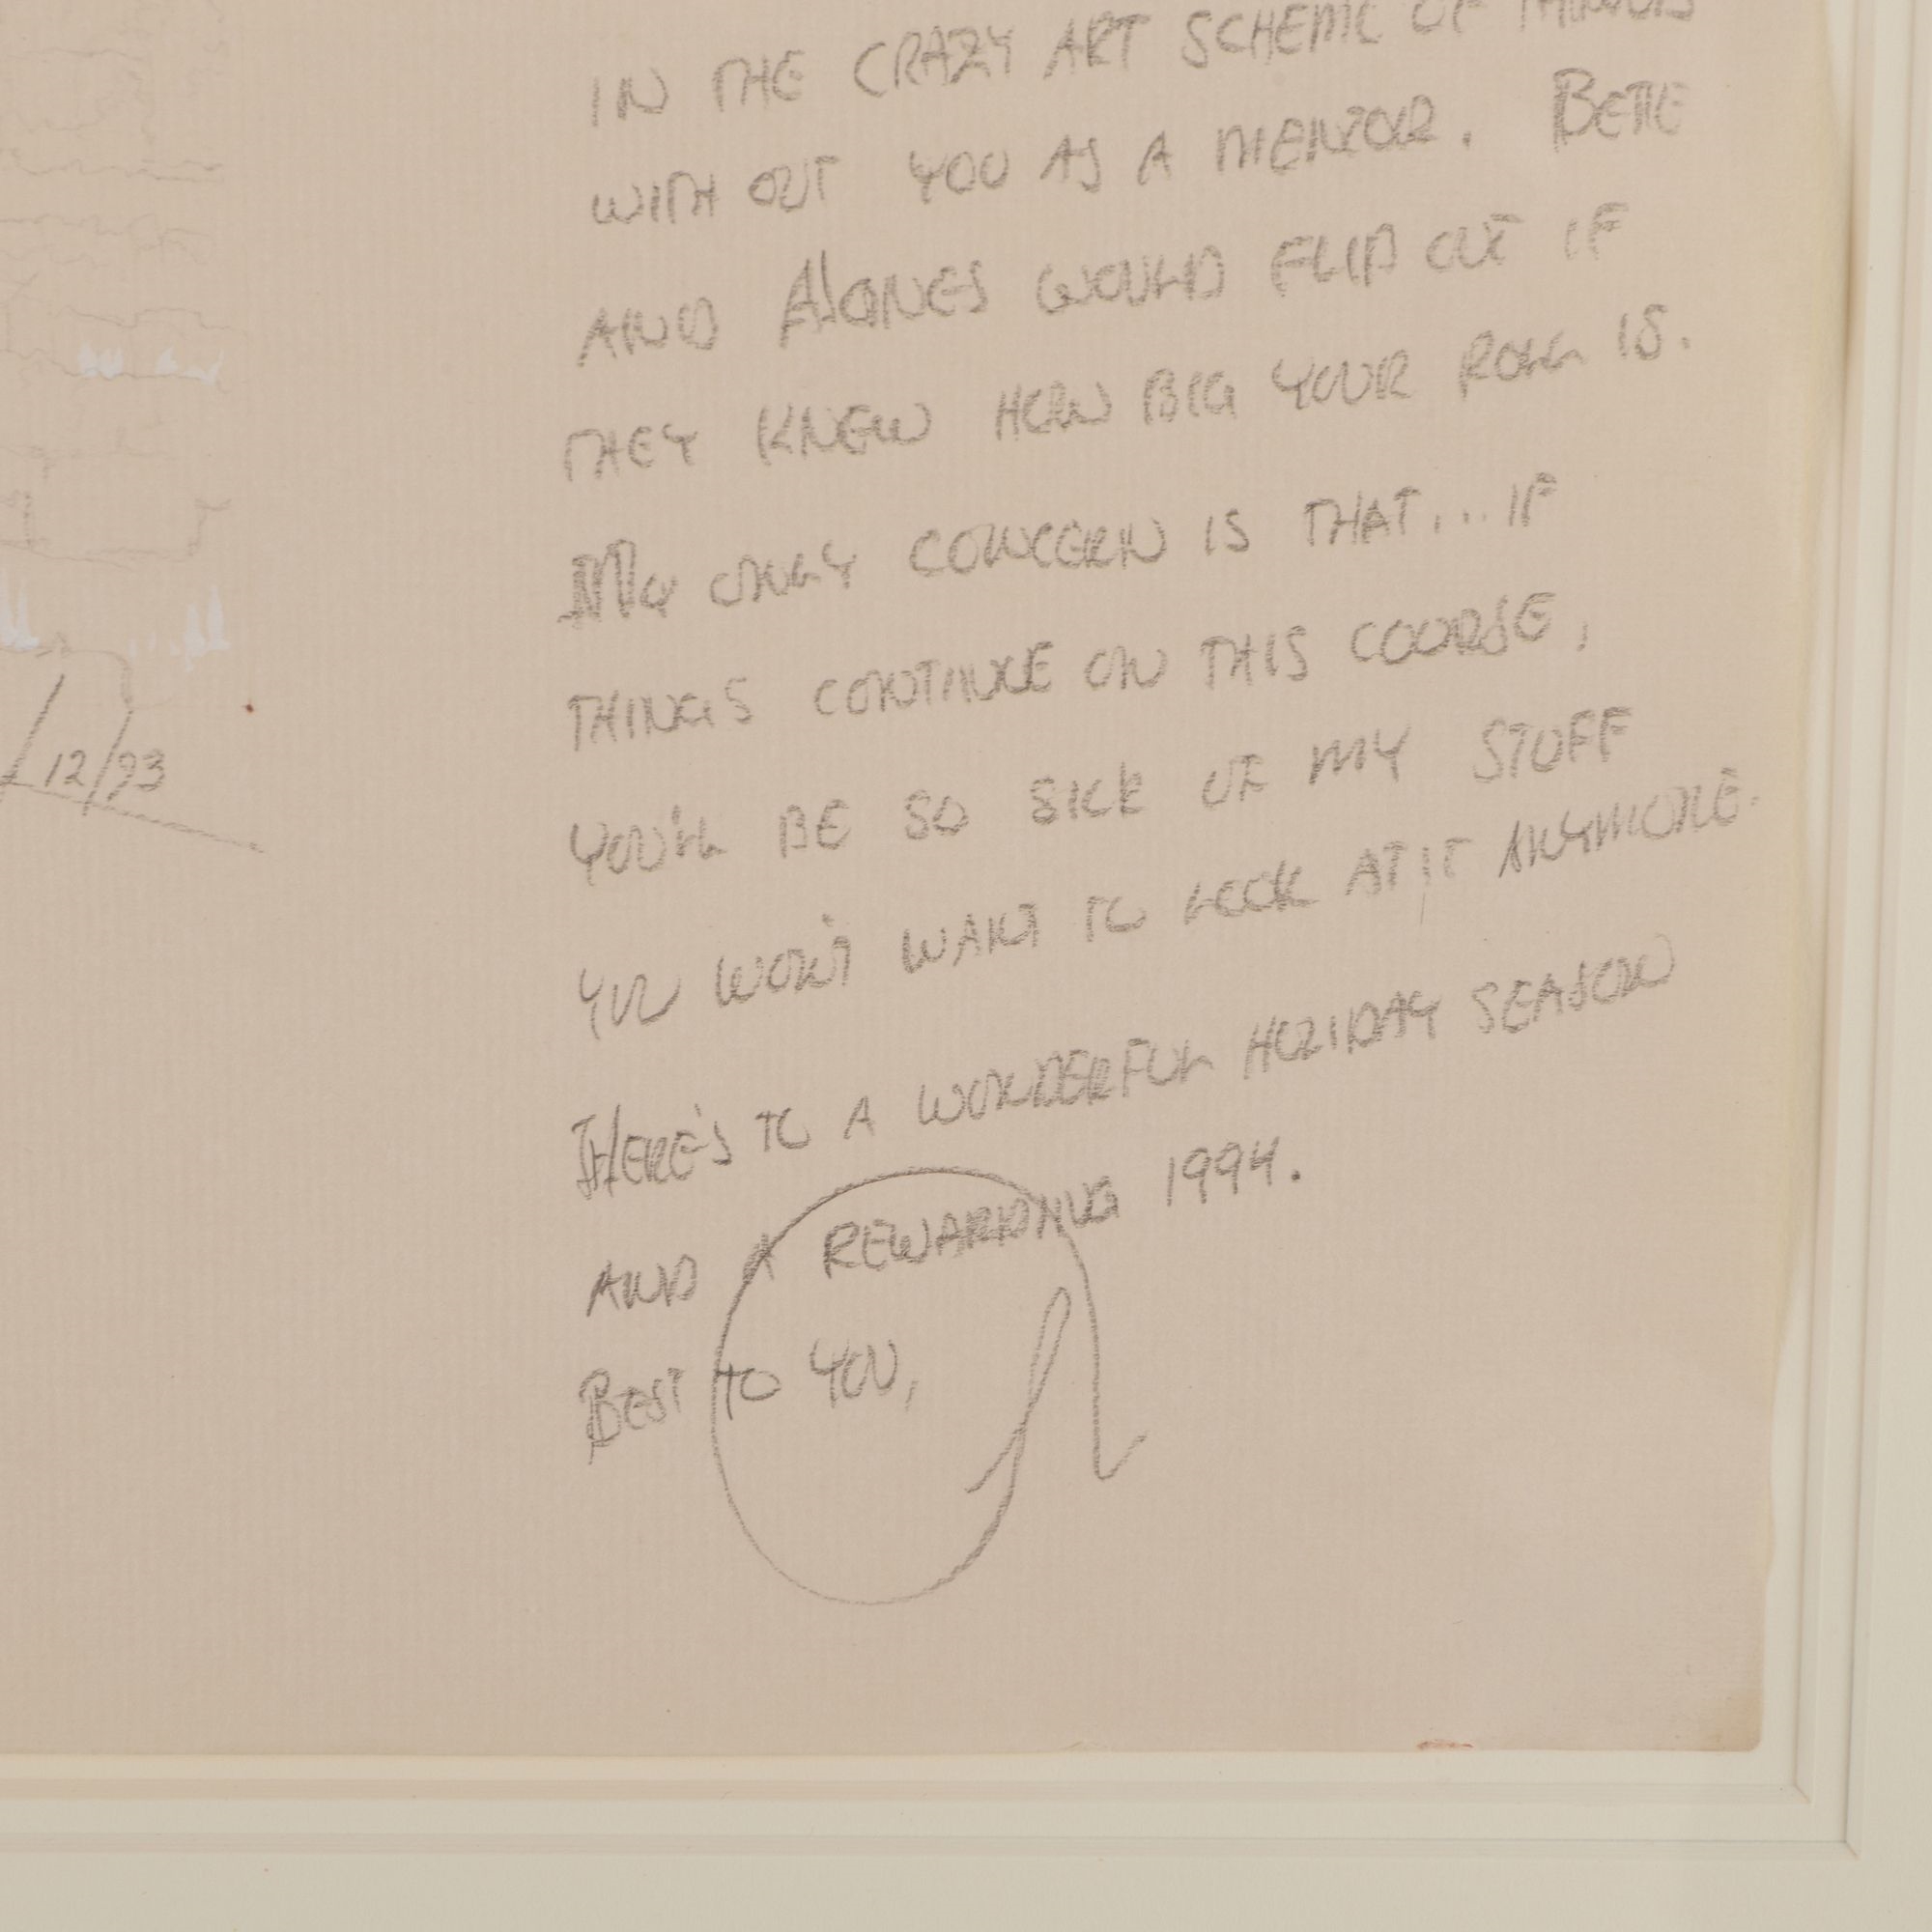 IN THE CRAZY ART SCHEME OF THINGS
WITHOUT YOU AS A MENTOR. BETTE
AND AGNES WOULD FLIP OUT IF
THEY KNEW HOW BIG YOUR ROLL IS.
MY ONLY CONCERN IS THAT... IF
THINGS CONTINUE ON THIS COURSE,
YOU'LL BE SO SICK OF MY STUFF
YOU WON'T WANT TO LOOK AT IT ANYMORE.
HERE'S TO A WONDERFUL HOLIDAY SEASON
AND A REWARDING 1994.
BEST TO YOU,
12/93